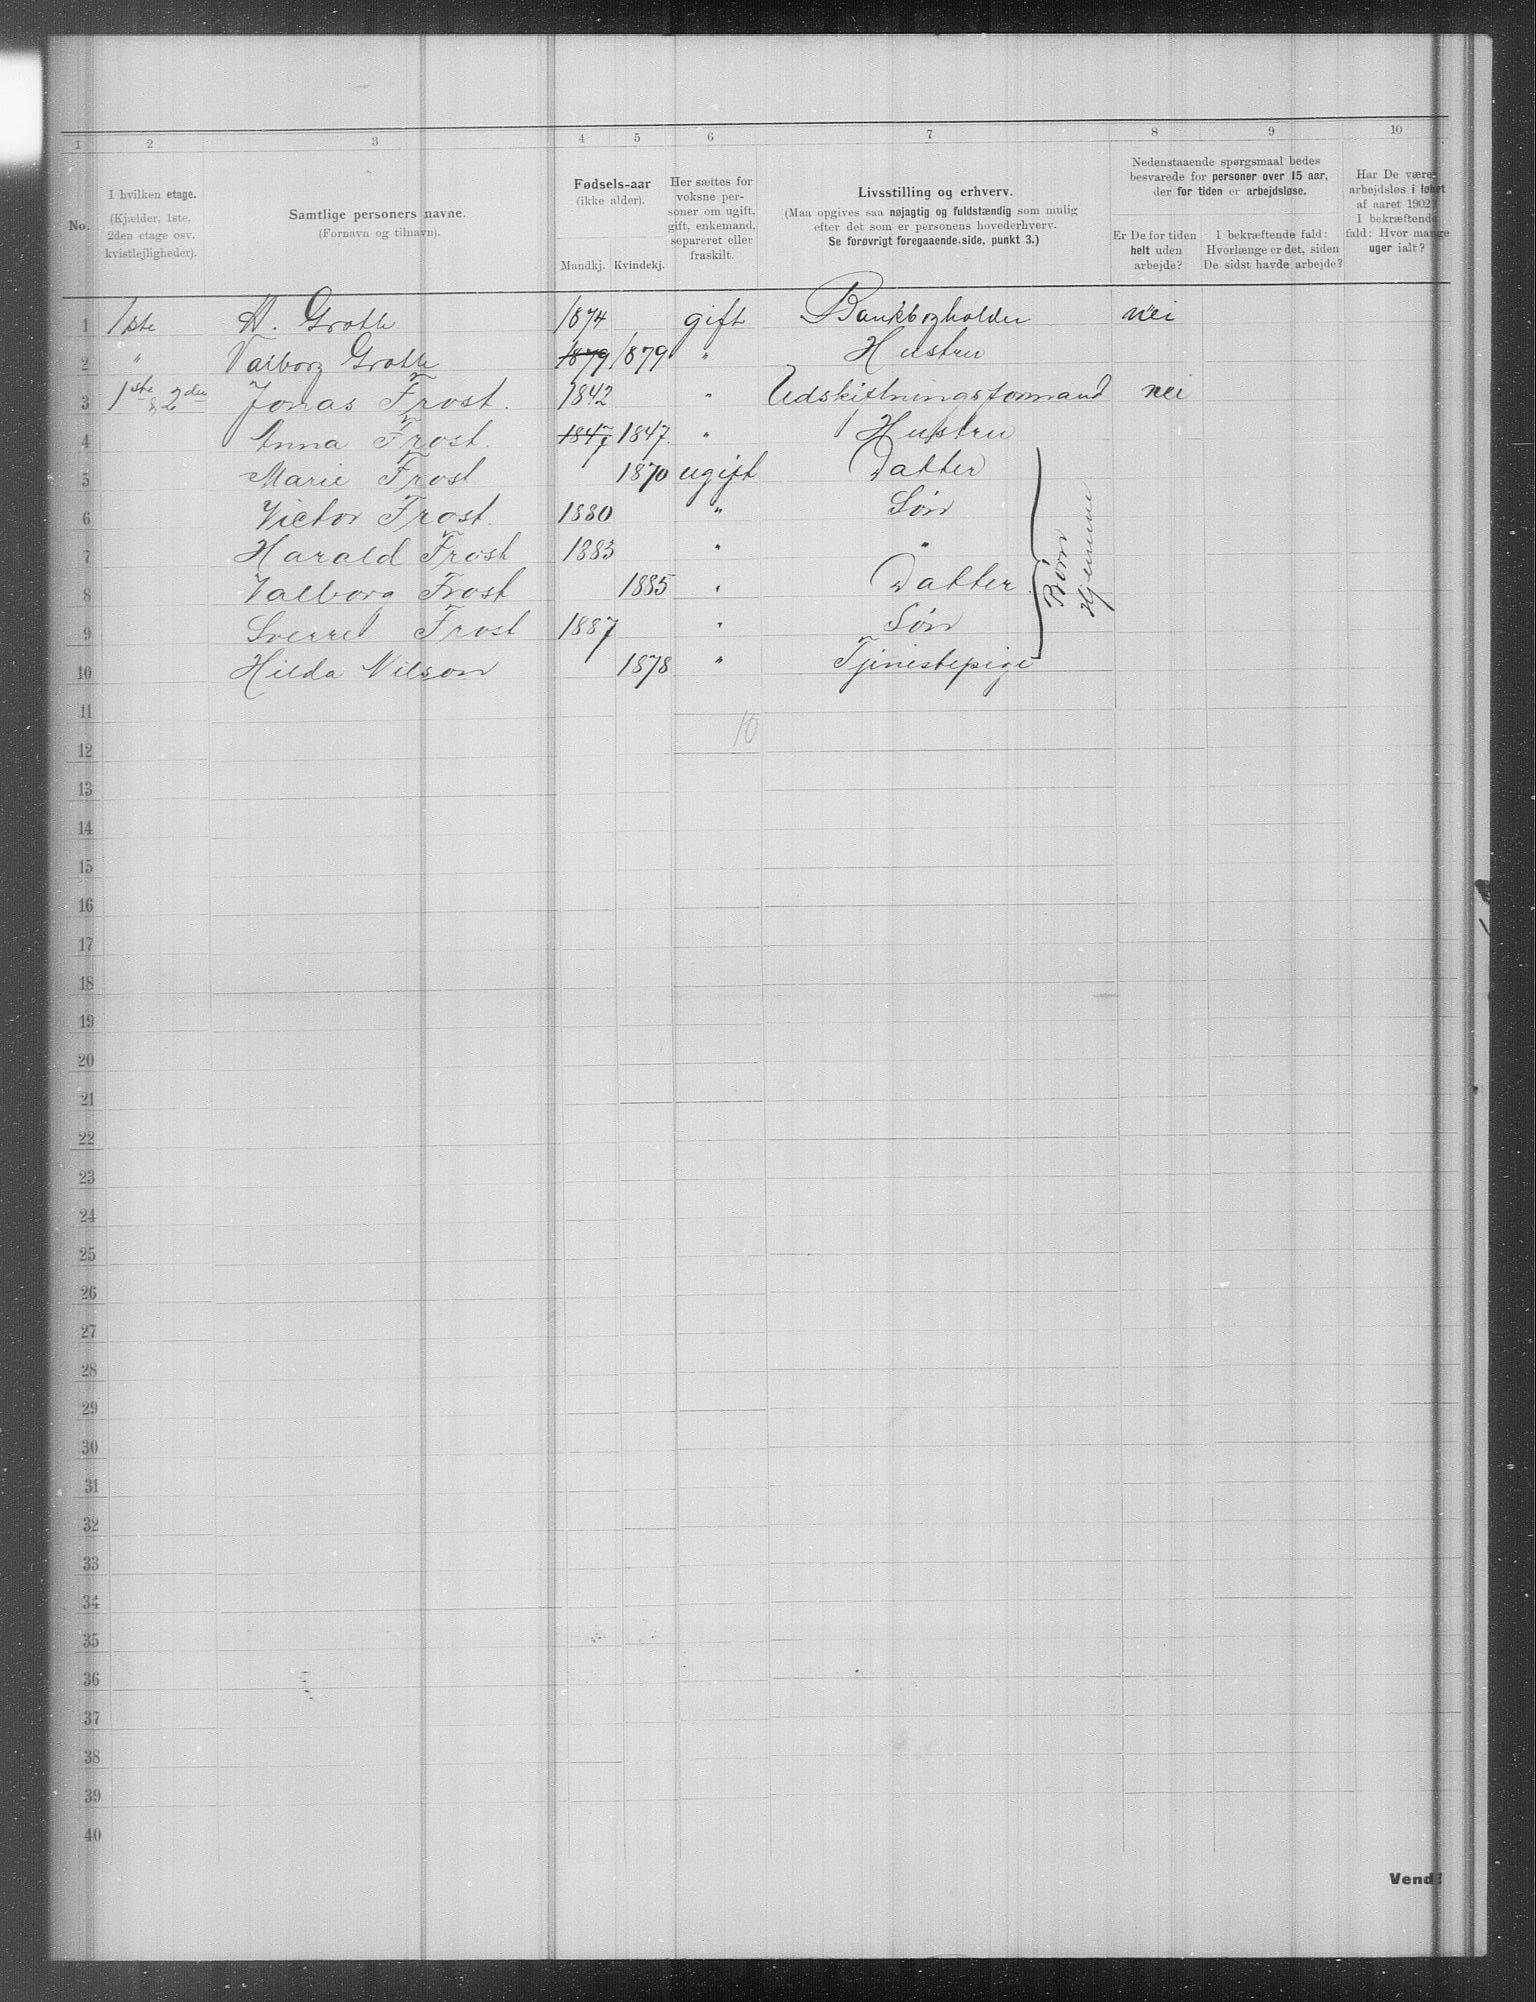 1 2 3 4 5 6 7 8 9 10
No.
I hvilken etage.
(Kjælder, 1ste,
2den etage osv.
kvistlejligheder).
Samtlige personers navne.
(Fornavn og tilnavn).
Fødsels-aar
(ikke alder).
Mandkj. Kvindekj.
Her sættes for
voksne per-
soner om ugift,
gift, enkemand,
separeret eller
fraskilt.
Livsstilling og erhverv.
(Maa opgives saa nøjagtig og fuldstændig som mulig
efter det som er personens hovederhverv.
Se forøvrigt foregaaende side, punkt 3.)
Nedenstaaende spørgsmaal bedes
besvarede for personer over 15 aar,
der for tiden er arbejdsløse.
Er De for tiden
helt uden
arbejde?
I bekræftende fald:
Hvorlænge er det, siden
De sidst havde arbejde?
Har De være
arbejdsløs i løbet
af aaret 1902?
I bekræftende
fald: Hvor mange
uger ialt?
1 1ste A. Groth 1874 gift Bankbogholder nei
2 " Valborg Groth 1879 1879 " Hustru
3 1ste & 2den Jonas Frost. 1842 " Udskiftningsformand nei
4 Anna Frost. 1847 1847. " Hustru
5 Marie Frost 1870 ugift Datter
6 Victor Frost. 1880 " Søn
7 Harald Frost 1883 " "
8 Valborg Frost 1885 " Datter.
9 Sverre Frost 1887 " Søn
Børn
Hjemme
10 Hilda Nilson 1878 " Tjenistepige
11
10
12
13
14
15
16
17
18
19
20
21
22
23
24
25
26
27
28
29
30
31
32
33
34
35
36
37
38
39
40
Vend!